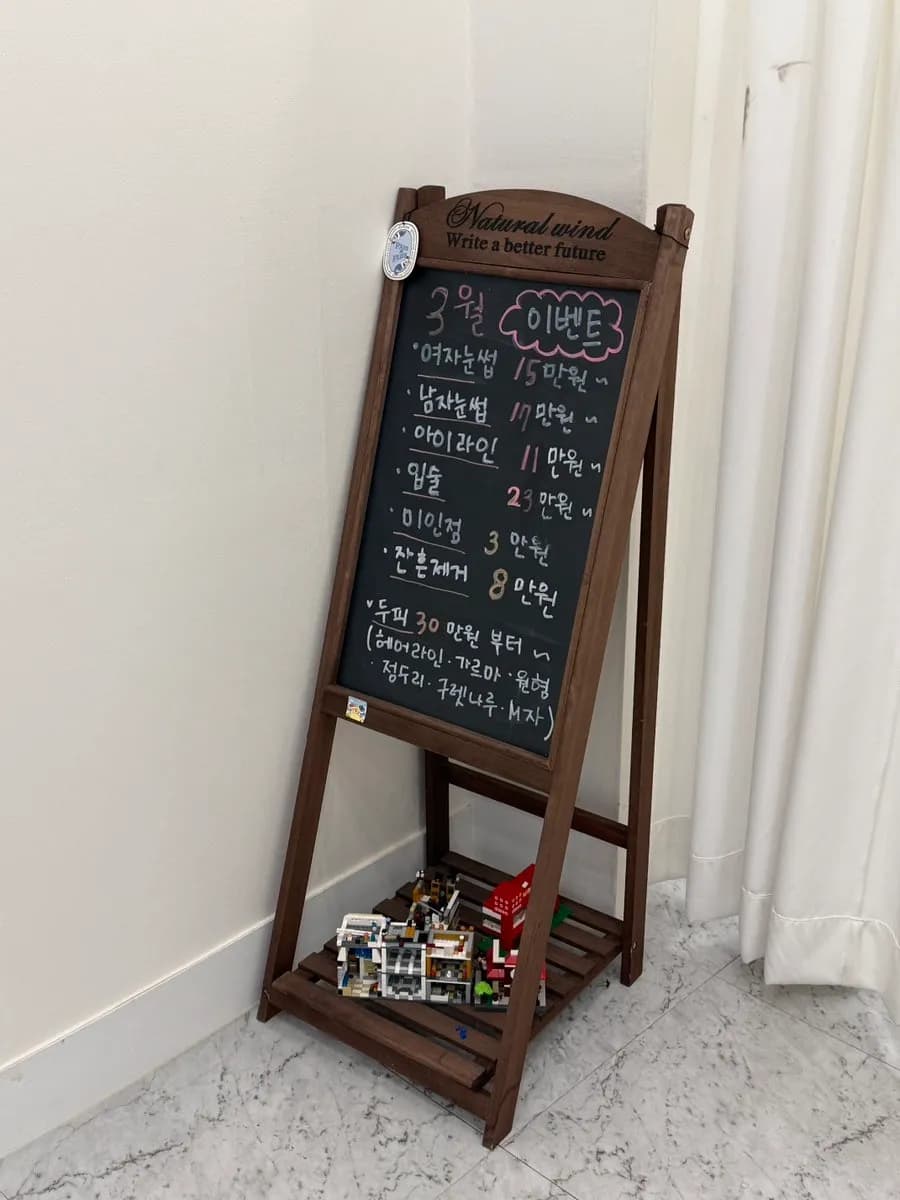 Natural wind
Write a better future
3월 이벤트
· 여자눈썹 15만원 ~
· 남자눈썹 17만원 ~
· 아이라인 11만원 ~
· 입술 23만원 ~
· 미인점 3만원
· 잔흔제거 8만원
두피 30만원 부터 ~
(헤어라인 · 가르마 · 원형
· 정두리 · 구렛나루 · M자)